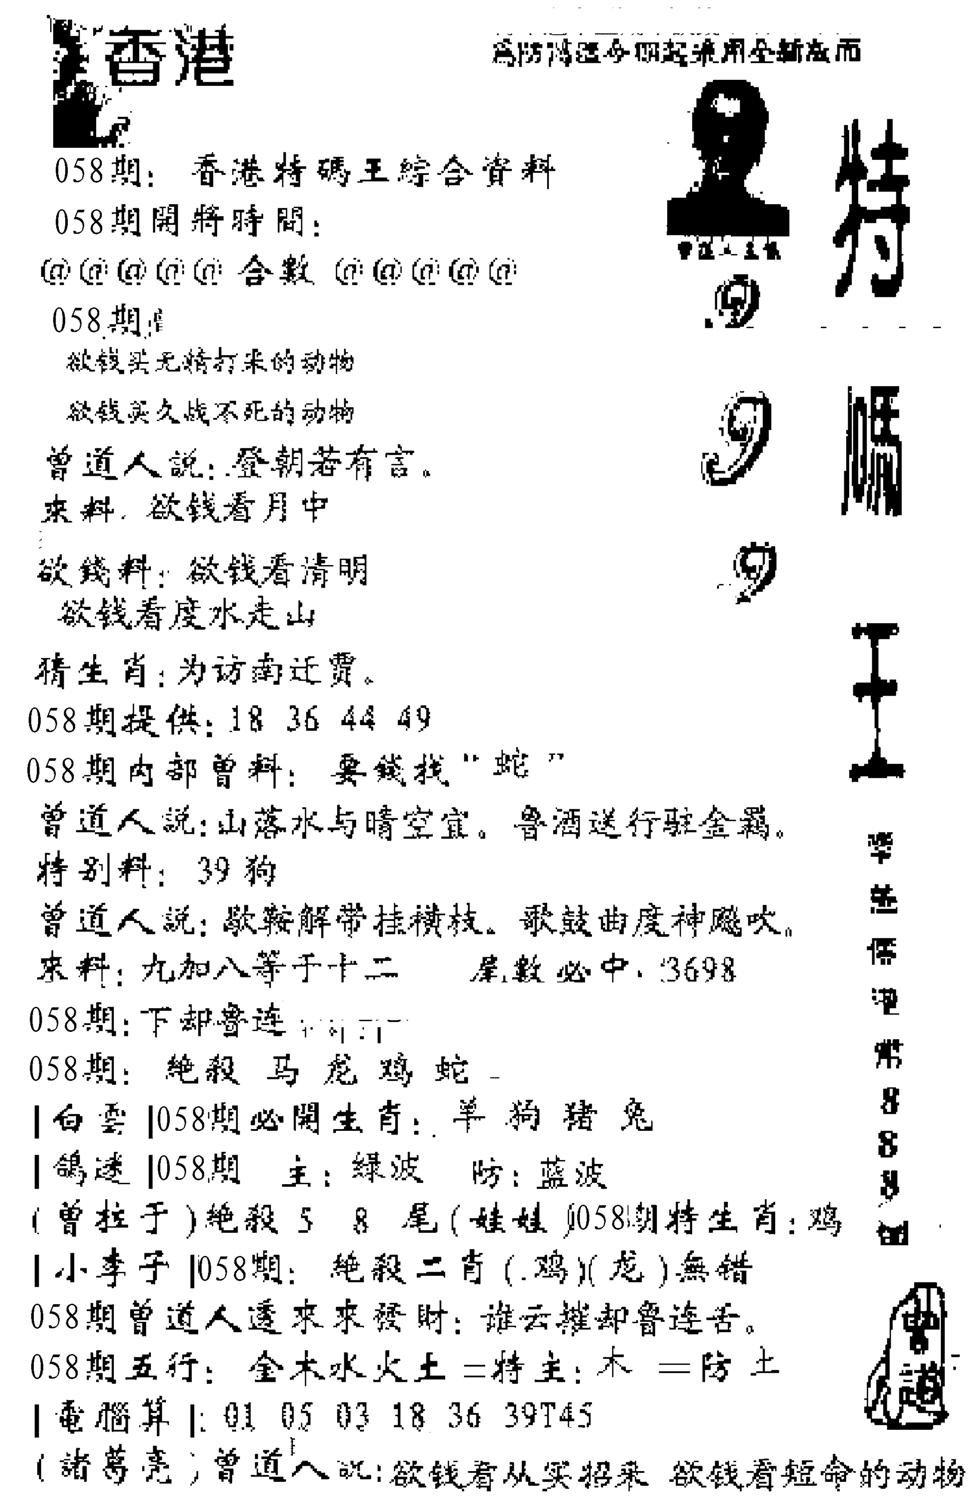 香港
為防鴻運今期起采用全新版面
058期: 香港特碼王綜合資料
058期開將時間:
@@@@@ 合數 @@@@@
058期:
欲钱买无精打采的动物
欲钱买久战不死的动物
曾道人説: 登朝若有言。
來料. 欲钱看月中
欲錢料: 欲钱看清明
欲钱看度水走山
猜生肖: 为访南迁贾。
058期提供: 18 36 44 49
058期内部曾料: 要錢找"蛇"
曾道人説: 山落水与晴空宜。鲁酒送行驻金羁。
特别料: 39 狗
曾道人説: 歇鞍解带挂横枝。歌鼓曲度神飚吹。
來料: 九加八等于十二 尾數必中: 3698
058期: 下却鲁连
058期: 絶殺 马 龙 鸡 蛇
|白雲|058期必開生肖: 羊 狗 猪 兔
|鴿迷|058期 主: 绿波 防: 蓝波
(曾拉于)絶殺 5 8 尾(娃娃)058期特生肖: 鸡
|小李子|058期: 絶殺二肖(鸡)(龙)無错
058期曾道人透來來發財: 谁云摧却鲁连舌。
058期五行: 金木水火土=特主: 木 =防 土
|電腦算|: 01 05 03 18 36 39T45
(諸葛亮)曾道人説: 欲钱看从实招来 欲钱看短命的动物
特
碼
王
9
9
9
888
曾道